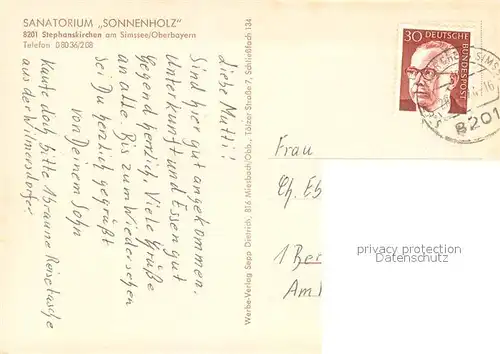 SANATORIUM „SONNENHOLZ"
8201 Stephanskirchen am Simssee/Oberbayern
Telefon 08036/208
Liebe Mutti!
Sind hier gut angekommen.
Unterkunft und Essen gut
Gegend herrlich. Viele Grüße
an alle. Bis zum Wiedersehen
sei Du herzlich gegrüßt
von Deinem Sohn
Kaufe doch bitte 1 braune Reisetasche
aus der Wilmersdorfer.
Werbe-Verlag Sepp Dietrich, 816 Miesbach/Obb., Tölzer Straße 7, Schließfach 134
30 DEUTSCHE
BUNDESPOST
SIMS
8201
Frau
Ch. Eb
1 Ber
Am
privacy protection
watermark